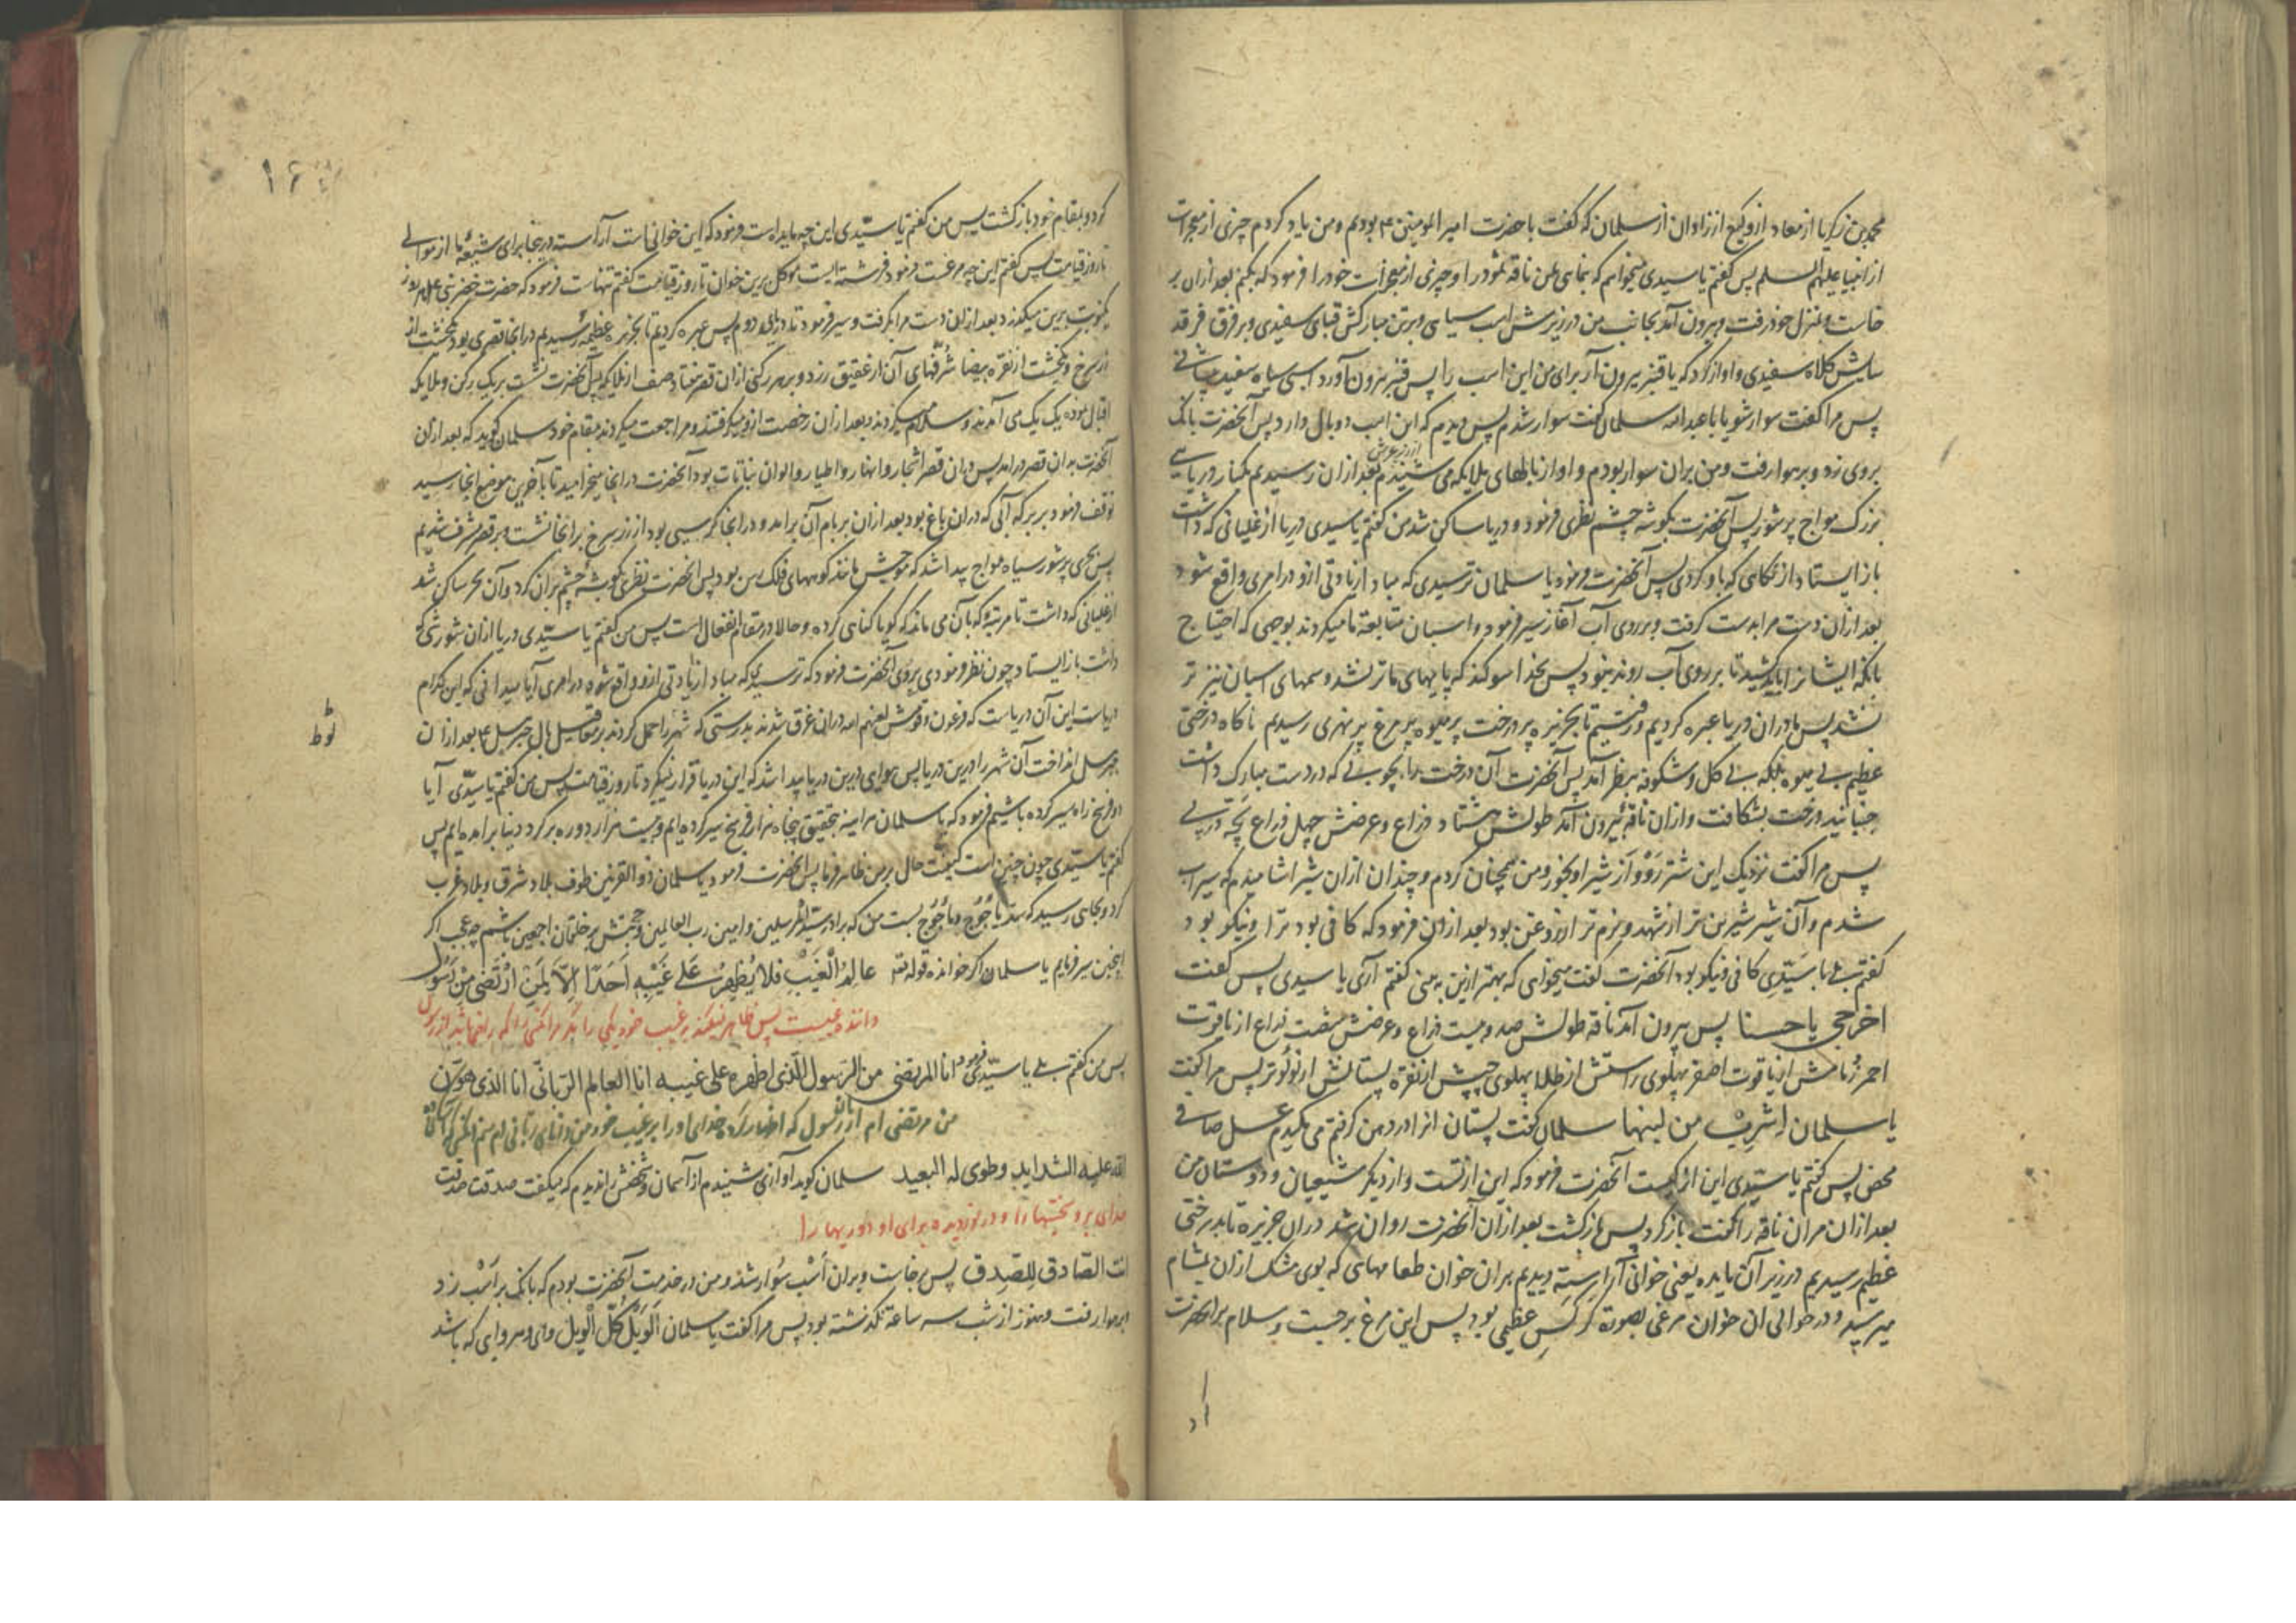 محمد بن زکریا از معاد از وکیع از زاوان از سلمان که گفت با حضرت امیر المومنین ۴ بودیم و من یاد کردم چیزی از معجزات
از انبیا علیهم السلم پس گفتم یا سیدی میخواهم که بنمای بمن ناقه ثمود را و چیزی از معجزات خود را فرمود که بکنم بعد ازان بر
خاست و بمنزل خود رفت و بیرون آمد بجانب من در زیرش اسب سیاهی و بر تن مبارکش قبای سفیدی و بر فرق فرقد
سایش کلاه سفیدی و اواز کرد که یا قنبر بیرون آر برای من این اسب را پس قنبر بیرون آورد اسبی سیاه سفید پیشانی
پس مرا گفت سوار شو یا با عبد الله سلمان گفت سوار شدم پس دیدم که این اسب دو بال دارد پس آنحضرت بانک
بروی زد و بر هوا رفت و من بران سوار بودم و اواز بالهای ملایکه می شنیدم از زیر عرش بعد ازان رسیدیم بکنار دریای
بزرک مواج پر شور پس آنحضرت بگوشه چشم نظری فرمود و دریا ساکن شد من گفتم یا سیدی دریا از غلیانی که داشت
باز ایستاد از نکاهی که باو کردی پس آنحضرت فرمود یا سلمان ترسیدی که مبادا زیادتی ازو در امری واقع شود
بعد ازان دست مرا بدست گرفت و بر روی آب آغاز سیر فرمود و اسبان متابعة ما میکردند بوجهی که احتیاج
بانکه ایشانرا باید کشید تا بر روی آب روند نبود پس بخدا سوکند که پایهای ما تر نشد و سمهای اسبان نیز تر
نشد پس ما دران دریا عبره کردیم و رفتیم تا بجزیره پر درخت پر میوه پر مرغ پر نهری رسیدیم ناکاه درختی
عظیم بی میوه بلکه بی کل و شکوفه بنظر آمد پس آنحضرت آن درخت را بچوبی که در دست مبارک داشت
جنبانید درخت بشکافت و ازان ناقه بیرون آمد طولش هشتاد ذراع و عرضش چهل ذراع بچه در پی
پس مرا گفت نزدیک این شتر رو و از شیر او بخور و من همچنان کردم و چندان ازان شیر اشامیدم که سیراب
شدم و آن شیر شیرین تر از شهد و نرم تر از روغن بود بعد ازان فرمود که کافی بود ترا و نیکو بود
گفتم بلی یا سیدی کافی و نیکو بود آنحضرت گفت میخواهی که بهتر ازین به بینی گفتم آری یا سیدی پس گفت
اخرجی یا حسنا پس بیرون آمد ناقه طولش صد و بیست ذراع و عرضش شصت ذراع از یاقوت
احمر زمامش از یاقوت اصفر پهلوی راستش از طلا پهلوی چپش از نقره پستانش از لؤلؤ تر پس مرا گفت
یا سلمان اشرب من لبنها سلمان گفت پستان انرا در دهن گرفتم می مکیدم عسل صافی
محض پس گفتم یا سیدی این از کیست آنحضرت فرمود که این از تست و از دیگر شیعیان و دوستان من
بعد ازان مران ناقه را گفت باز گرد پس بازگشت بعد ازان آنحضرت روان شد دران جزیره تا بدرختی
عظیم رسیدیم در زیر آن مایده یعنی خوانی آراسته دیدیم بران خوان طعامهای که بوی مشک ازان بمشام
میرسید و در حوالی ان خوان مرغی بصورة کرکس عظیمی بود پس این مرغ برجست و سلام بر انحضرت
۱۶
کرد و بمقام خود بازگشت پس من گفتم یا سیدی این چه مایده است فرمود که این خوانیست آراسته درینجا برای شیعه ما از موالی
تا روز قیامت پس گفتم این چه مرغست فرمود فرشته ایست موکل برین خوان تا روز قیامت گفتم تنهاست فرمود که حضرت خضر نبی هر روز
یکنوبت برین میگذرد بعد ازان دست مرا بگرفت و سیر فرمود تا دریای دوم پس عبره کردیم تا بجزیره عظیمه رسیدیم در انجا قصری بود یکخشت از
زر سرخ و یکخشت از نقره بیضا شرفهای آن از عقیق زرد و بر هر رکنی ازان قصر هفتاد صف از ملایکه پس آنحضرت نشست بر یک رکن و ملایکه
اقبال نموده یک یک می آمدند و سلام میکردند و بعد ازان رخصت ازو میگرفتند و مراجعت میکردند بمقام خود سلمان گوید که بعد ازان
آنحضرت بدان قصر درامد پس دران قصر اشجار و انهار و اطیار و الوان نباتات بود آنحضرت در انجا میخرامید تا بآخرین موضع انجا رسید
توقف فرمود بر برکه آبی که دران باغ بود بعد ازان بر بام آن برامد و در انجا کرسیی بود از زر سرخ برانجا نشست بر قصر مشرف شدیم
پس بحری پر شور سیاه مواج پیدا شد که موجش مانند کوههای فلک رس بود پس انحضرت نظری بگوشه چشم بران کرد و آن بحر ساکن شد
از غلیانی که داشت تا مرتبه که بآن می ماند که گویا گناهی کرده و حالا در مقام انفعال است پس من گفتم یا سیدی دریا ازان شورشی که
داشت باز ایستاد چون نظر فرمودی بروی آنحضرت فرمود که ترسید که مبادا زیادتی ازو واقع شود در امری آیا میدانی که این کدام
دریاست این آن دریاست که فرعون و قومش لعنهم الله دران غرق شدند بدرستی که شهر را حمل کردند بر بال جبرییل ۴ بعد ازان
لوط
جبرییل انداخت آن شهر را درین دریا پس هوایی درین دریا پیدا شد که این دریا قرار نگیرد تا روز قیامت پس من گفتم یا سیدی آیا
دو فرسخ راه سیر کرده باشیم فرمود که یا سلمان هر اینه بتحقیق پنجاه هزار فرسخ سیر کرده ایم و بیست هزار دوره بر گرد دنیا برامده ایم پس
گفتم یا سیدی چون چنین است کیفیت حال بر من ظاهر فرما پس انحضرت فرمود یا سلمان ذو القرنین طوف بلاد شرق و بلاد غرب
کرد و بجای رسید که سد یاجوج و ماجوج بست من که برادر سید المرسلین و امین رب العالمین و حجتش بر خلقان اجمعین باشم چه عجب اگر
اینچنین سیر فرمایم یا سلمان اگر خوانده قوله تع عالم الغیب فلا یظهر علی غیبه احدا الا لمن ارتضی من رسول
داننده غیبست پس ظاهر نمیکند بر غیب خود یکی را مگر مر آنکسی را که راضی باشد از رسول
پس من گفتم بلی یا سیدی فرمود انا المرتضی من الرسول الذی اظهره علی غیبه انا العالم الربانی انا الذی هون
من مرتضی ام از رسول که اظهار کرده خدای او را بر غیب خود من دانای ربانی ام منم انکس که آسان
الله علیه الشداید وطوی له البعید سلمان گوید آوازی شنیدم از آسمان و شخصش را ندیدم که میگفت صدقت صدقت
خدای برو سختیها را و در نوردیده برای او دوریها را
انت الصادق للصدق پس برخاست و بران اسب سوار شد و من در خدمت آنحضرت بودم که بانک بر اسب زد
بر هوا رفت و هنوز از شب سه ساعة نگذشته بود پس مرا گفت یا سلمان الویل کل الویل وای و هر وای که باشد